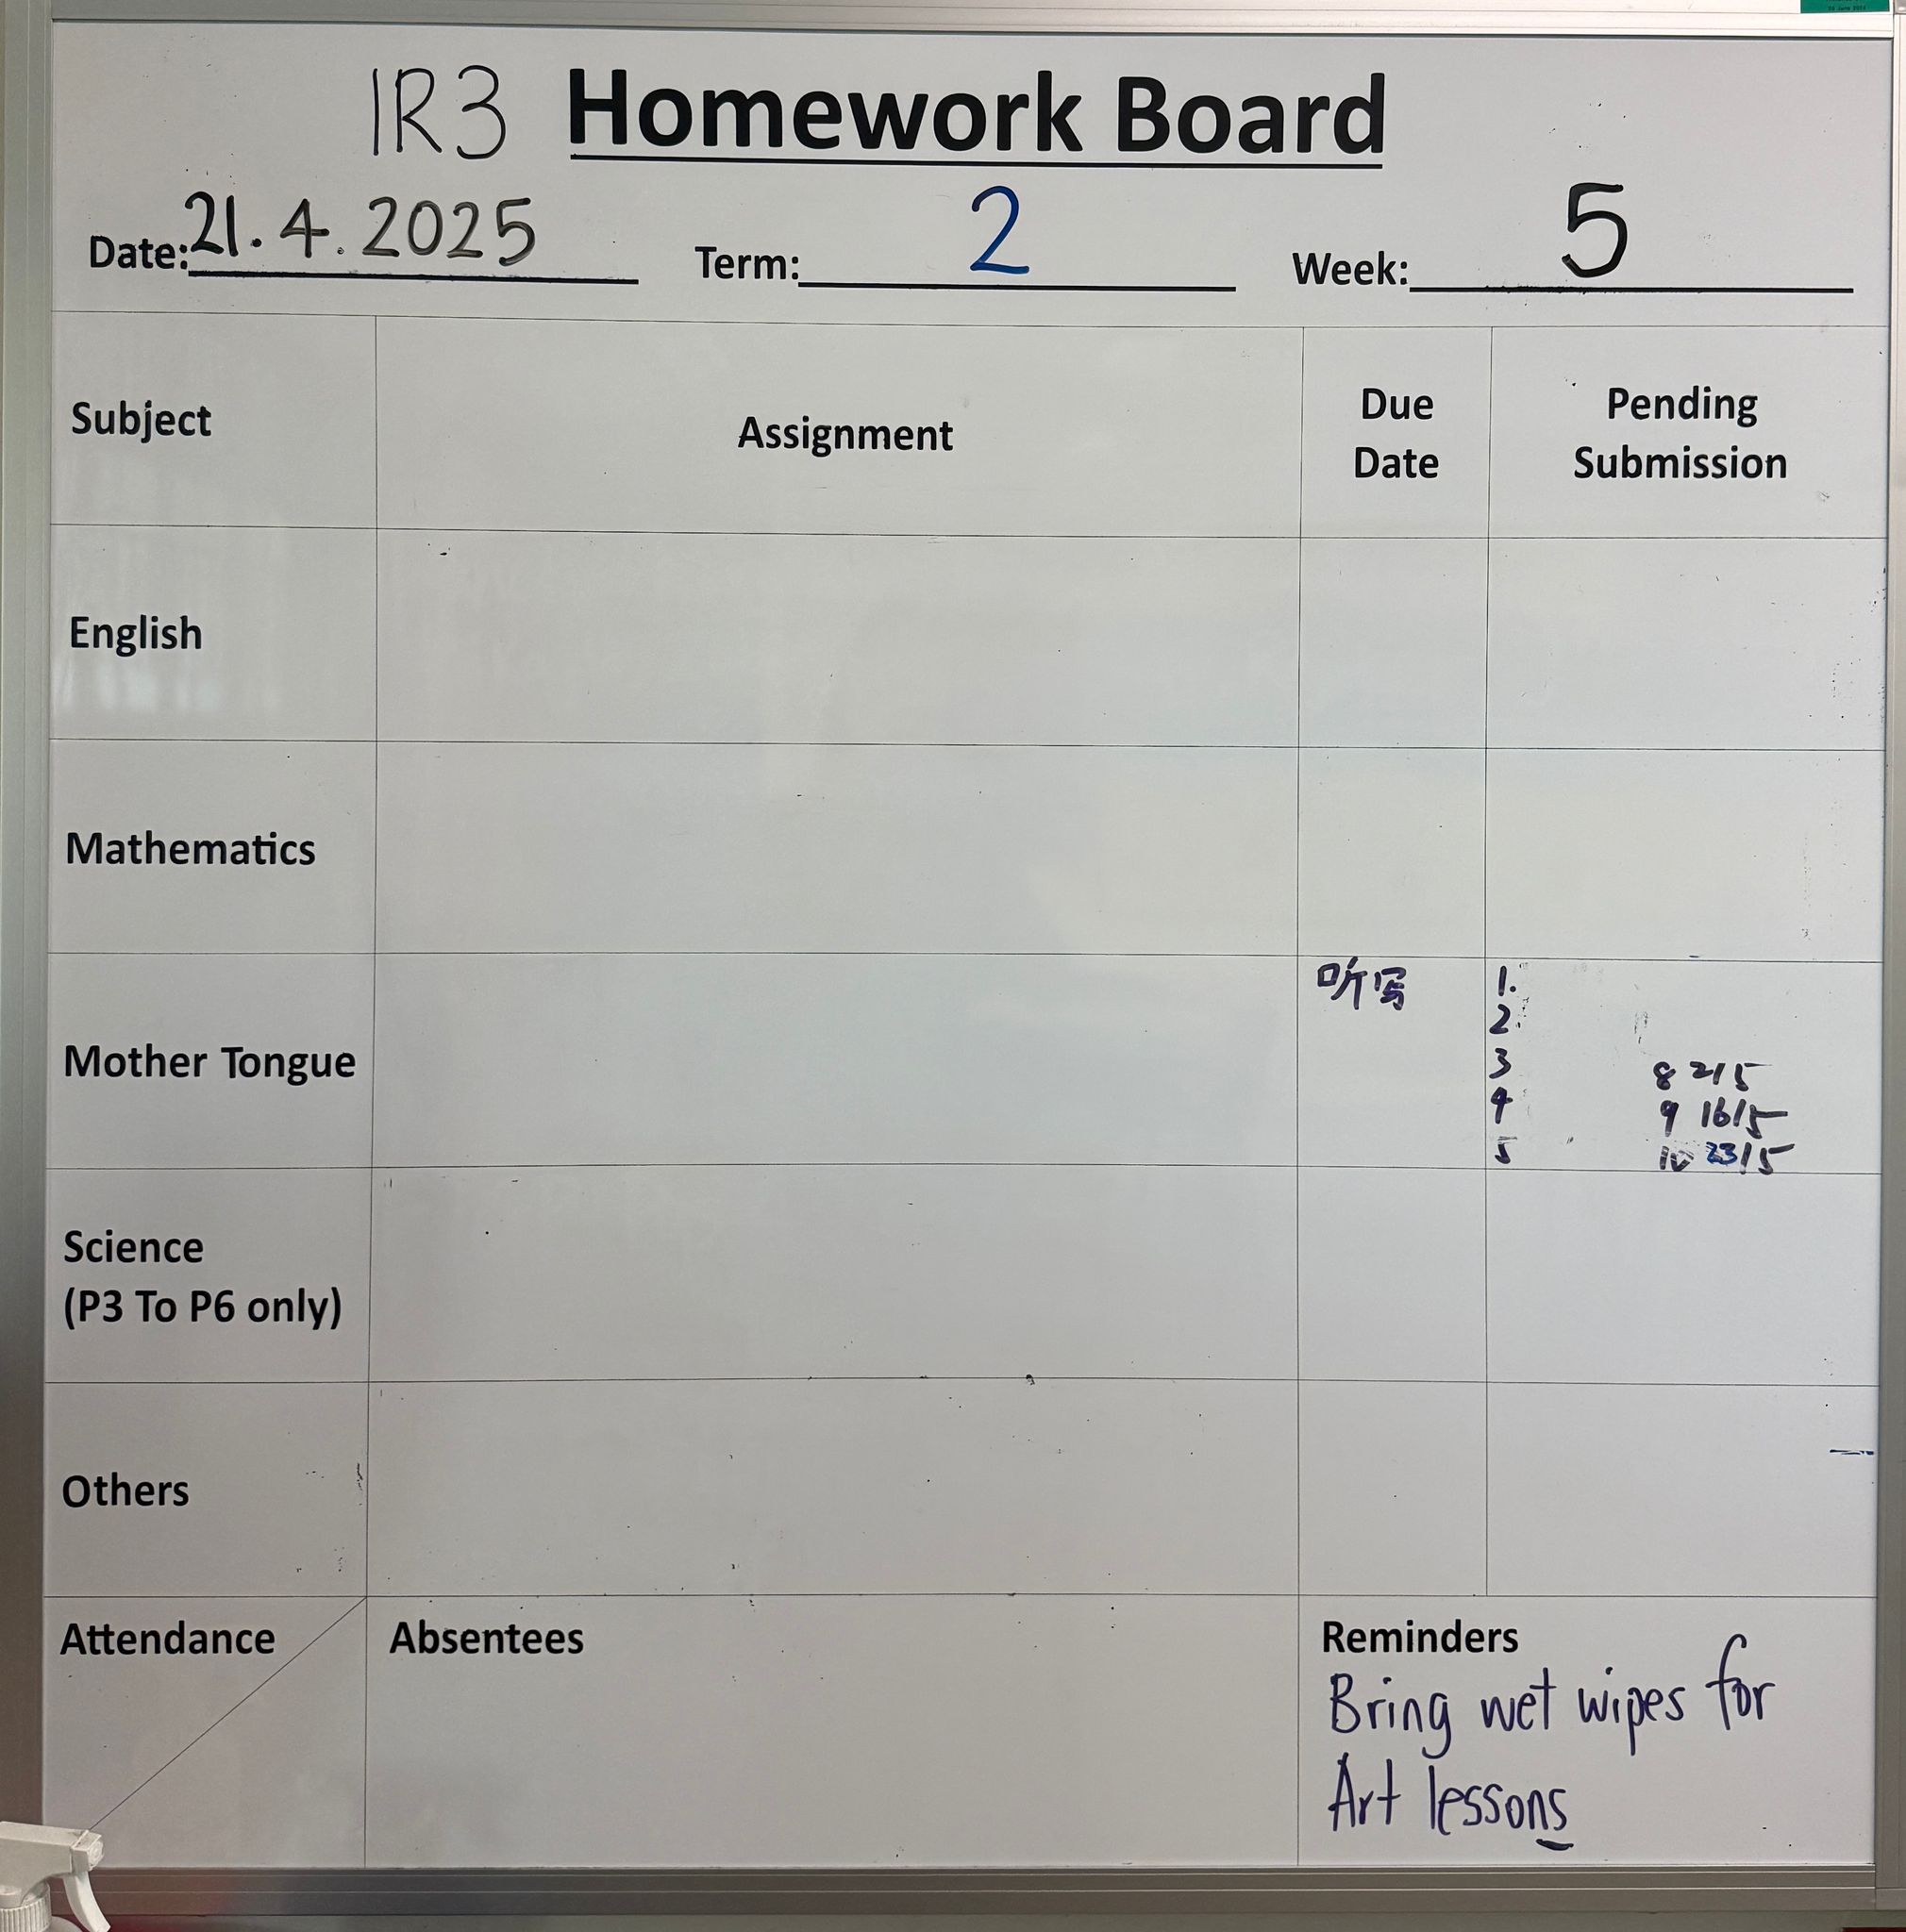 1R3 Homework Board
Date: 21.4.2025 Term: 2 Week: 5
Subject Assignment Due Date Pending Submission
English
Mathematics
Mother Tongue
听写
1.
2.
3 8 2/5
4 9 16/5
5 10 23/5
Science
(P3 To P6 only)
Others
Attendance Absentees Reminders
Bring wet wipes for
Art lessons